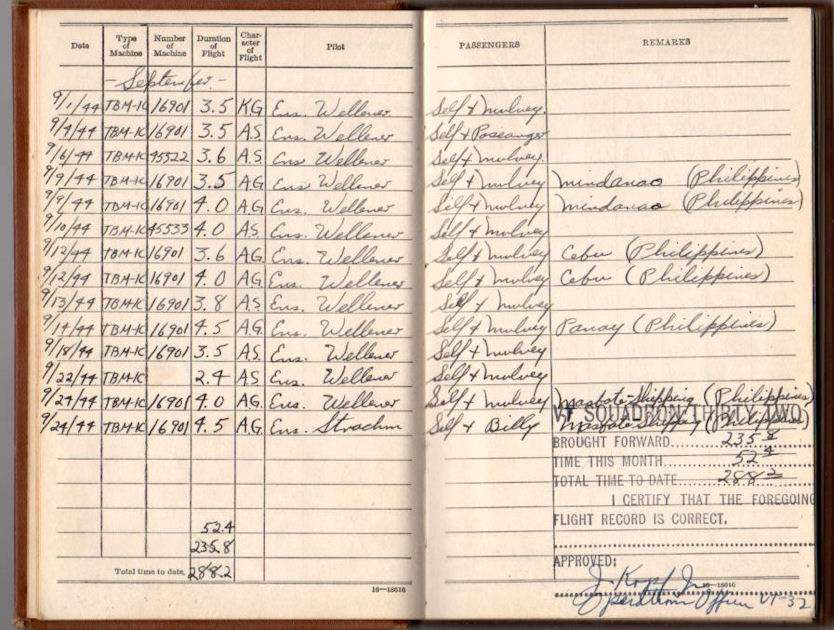 Date Type of Machine Number of Machine Duration of Flight Character of Flight Pilot PASSENGERS REMARKS
- September -
9/1/44 TBM-1C 16901 3.5 KG Ens. Wellener Self + Mulvey
9/4/44 TBM-1C 16901 3.5 AS Ens. Wellener Self + Passenger
9/6/44 TBM-1C 45322 3.6 A.S. Ens Wellener Self + Mulvey
9/9/44 TBM-1C 16901 3.5 A.G Ens Wellener Self + Mulvey Mindanao (Philippines)
9/9/44 TBM-1C 16901 4.0 A.G. Ens. Wellener Self + Mulvey Mindanao (Philippines)
9/10/44 TBM-1C 45533 4.0 AS Ens. Wellener Self + Mulvey
9/12/44 TBM-1C 16901 3.6 AG Ens. Wellener Self + Mulvey Cebu (Philippines)
9/12/44 TBM-1C 16901 4.0 AG. Ens. Wellener Self + Mulvey Cebu (Philippines)
9/13/44 TBM-1C 16901 3.8 A.S Ens. Wellener Self + Mulvey
9/14/44 TBM-1C 16901 4.5 A.G. Ens. Wellener Self + Mulvey Panay (Philippines)
9/18/44 TBM-1C 16901 3.5 A.S. Ens. Wellener Self + Mulvey
9/22/44 TBM-1C 2.4 A.S. Ens. Wellener Self + Mulvey
9/24/44 TBM-1C 16901 4.0 A.G. Ens. Wellener Self + Mulvey Masbate Shipping (Philippines)
9/24/44 TBM-1C 16901 4.5 A.G. Ens. Strachm Self + Billy Masbate Shipping (Philippines)
VT SQUADRON THIRTY TWO
BROUGHT FORWARD 235.8
TIME THIS MONTH 52.4
TOTAL TIME TO DATE 288.2
I CERTIFY THAT THE FOREGOING
FLIGHT RECORD IS CORRECT.
52.4
235.8
APPROVED:
Total time to date, 288.2
16—18616 J. Kopf Jr. 16—18616
Operations Officer VT-32